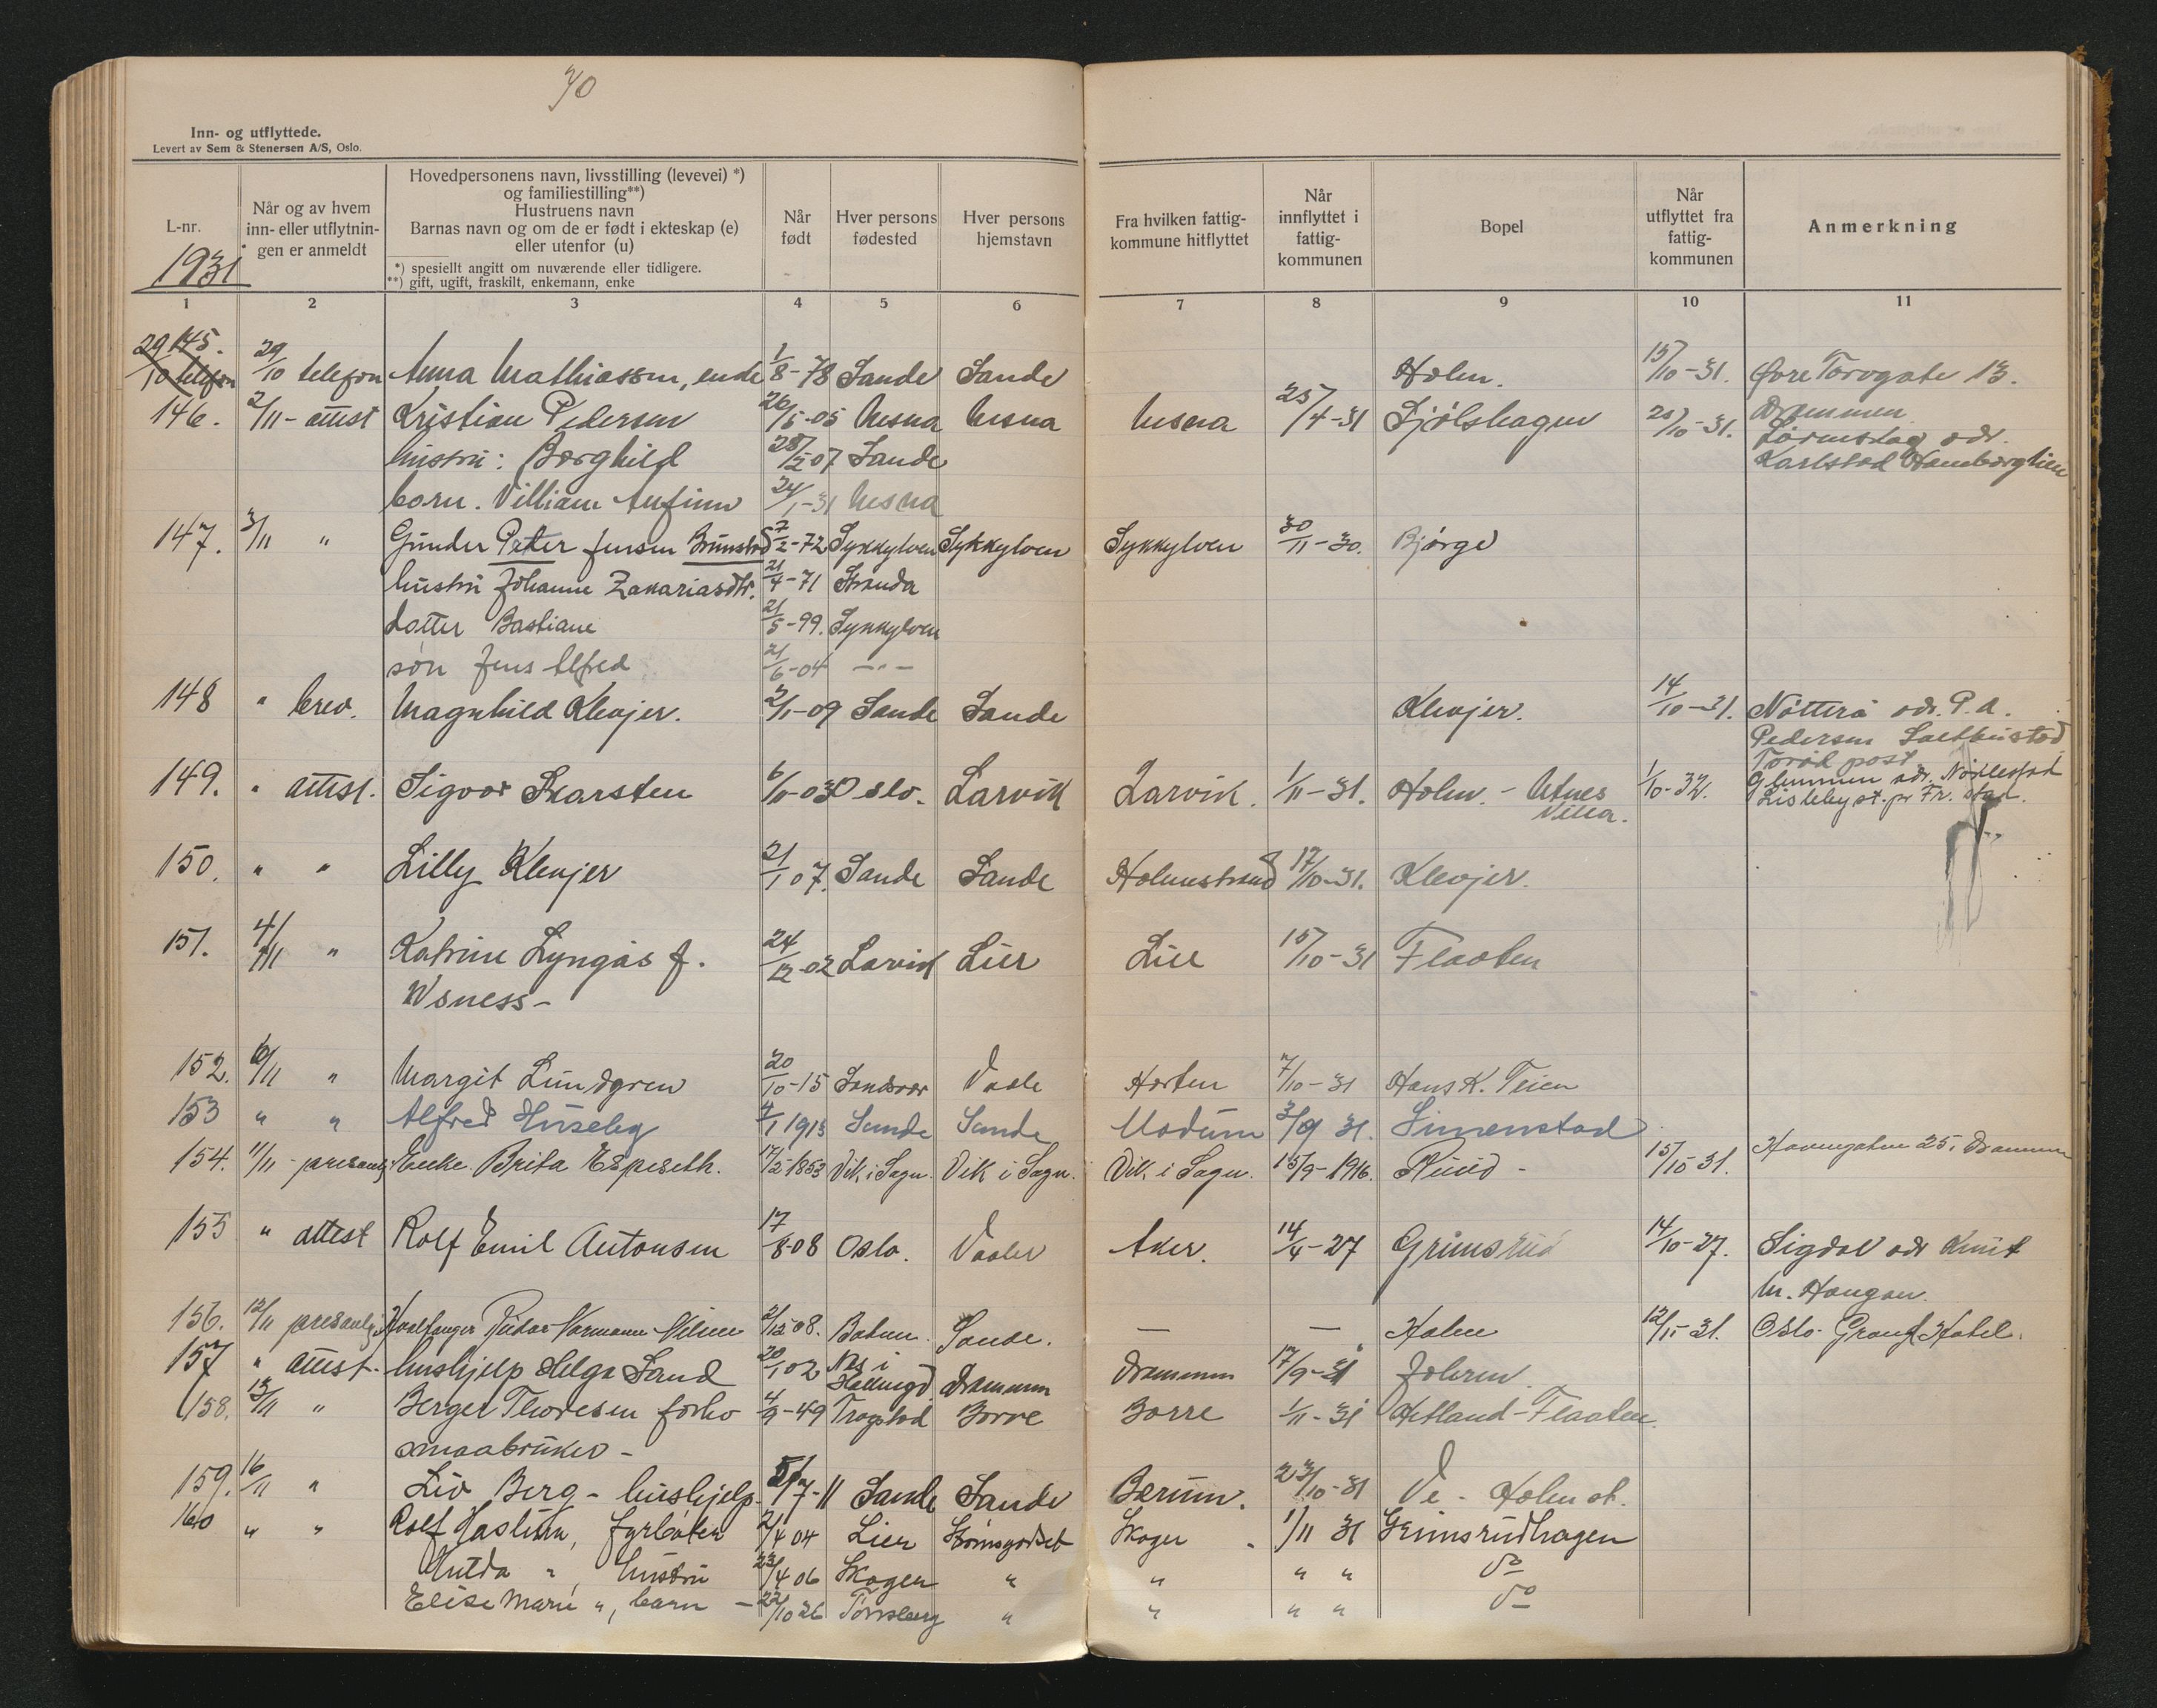 70
Inn- og utflyttede.
Levert av Sem & Stenersen A/S, Oslo.
L-nr.
1931
Når og av hvem
inn- eller utflytnin-
gen er anmeldt
Hovedpersonens navn, livsstilling (levevei) *)
og familiestilling**)
Hustruens navn
Barnas navn og om de er født i ekteskap (e)
eller utenfor (u)
*) spesiellt angitt om nuværende eller tidligere.
**) gift, ugift, fraskilt, enkemann, enke
Når
født
Hver persons
fødested
Hver persons
hjemstavn
Fra hvilken fattig-
kommune hitflyttet
Når
innflyttet i
fattig-
kommunen
Bopel
Når
utflyttet fra
fattig-
kommunen
Anmerkning
1 2 3 4 5 6 7 8 9 10 11
145. 29/10 telefon Anna Mathiassen, enke 1/8-78 Sande Sande Holm. 15/10-31. Øvre Torvgate 13.
Drammen
146. 2/11 - attest Kristian Pedersen 26/5-05 Nesna Nesna Nesna 25/4-31 Fjølshagen 25/10-31. adr.
Karlstad
hustru: Borghild 28/2 07 Sande
barn. Villiam Anfinn 24/1-31 Nesna
147. 3/11 " Gunder Peter Jensen Brunstad 7/2-72 Sykkylven Sykkylven Sykkylven 30/11-30. Bjørge
hustru Johanne Zakariasdtr. 21/4-71 Stranda
dotter Bastiane 21/5-99. Sykkylven
søn Jens Alfred 21/6-04 -"-
148 " brev. Magnhild Klevjer. 2/11-09 Sande Sande Klevjer. 14/10-31. Nøtterø adr. P.A.
Pedersen
Torød post
149. " attest. Sigvor Skarsten 6/11-03 Oslo. Larvik Larvik. 1/11-31. Holm. - Utnes
Villa. 1/10-32. Glemmen adr. Nordlestad
Lisleby st. pr Fr. stad.
150. " " Lilly Klevjer 21/1 07. Sande Sande Holmestrand 17/10-31. Klevjer.
151. 4/11 " Katrine Lyngås f. 24/12-02 Larvik Lier Lier 15/10-31 Flaaten
Usness -
152. 6/11 " Margit Lundgren 20/10-15 Sandsvær Vaale Horten 7/10-31 Hans K. Teien
153 " " Alfred Huseby 4/1 1913 Sande Sande Modum 3/9 31. Simenstad
154. 11/11 - presantlig Enke Brita Espeseth. 17/2-1853 Vik i Sogn. Vik i Sogn. Vik i Sogn. 15/9-1916. Ruud - 15/10 31. Havnegaten 25, Drammen
155 " attest Rolf Emil Antonsen 17/8-08 Oslo. Vaaler Aker. 14/4-27 Grimsrud 14/10-27. Sigdal adr Knut
M. Haugan.
156. 12/11 presantlig Hvalfanger Vilmen 2/12 08. Botne. Sande. - - Holm 12/11-31. Oslo. Grand Hotel.
157 " attest. hushjelp Helga Sand 20/1 02 Nes i
Hallingd Drammen Drammen 17/9-31 Joleren.
158. 13/11 " Berger Thoresen forhv 4/9-49 Trøgstad Borre Borre 1/11-31 Hetland - Flaaten
smaabruker -
159. 16/11 " Liv Berg - hushjelp. 5/7-11 Sande Sande Bærum. 23/10-31 Ve - Holm st.
160 " " Rolf Haslum, fyrbøter 2/4 04 Lier Strømsgodset Skoger 1/11 31 Grimsrudhagen
Hulda ", hustru 23/4 06 Skoger " " " " do
Elise Marie ", barn - 22/10 26 Tønsberg " " " " do